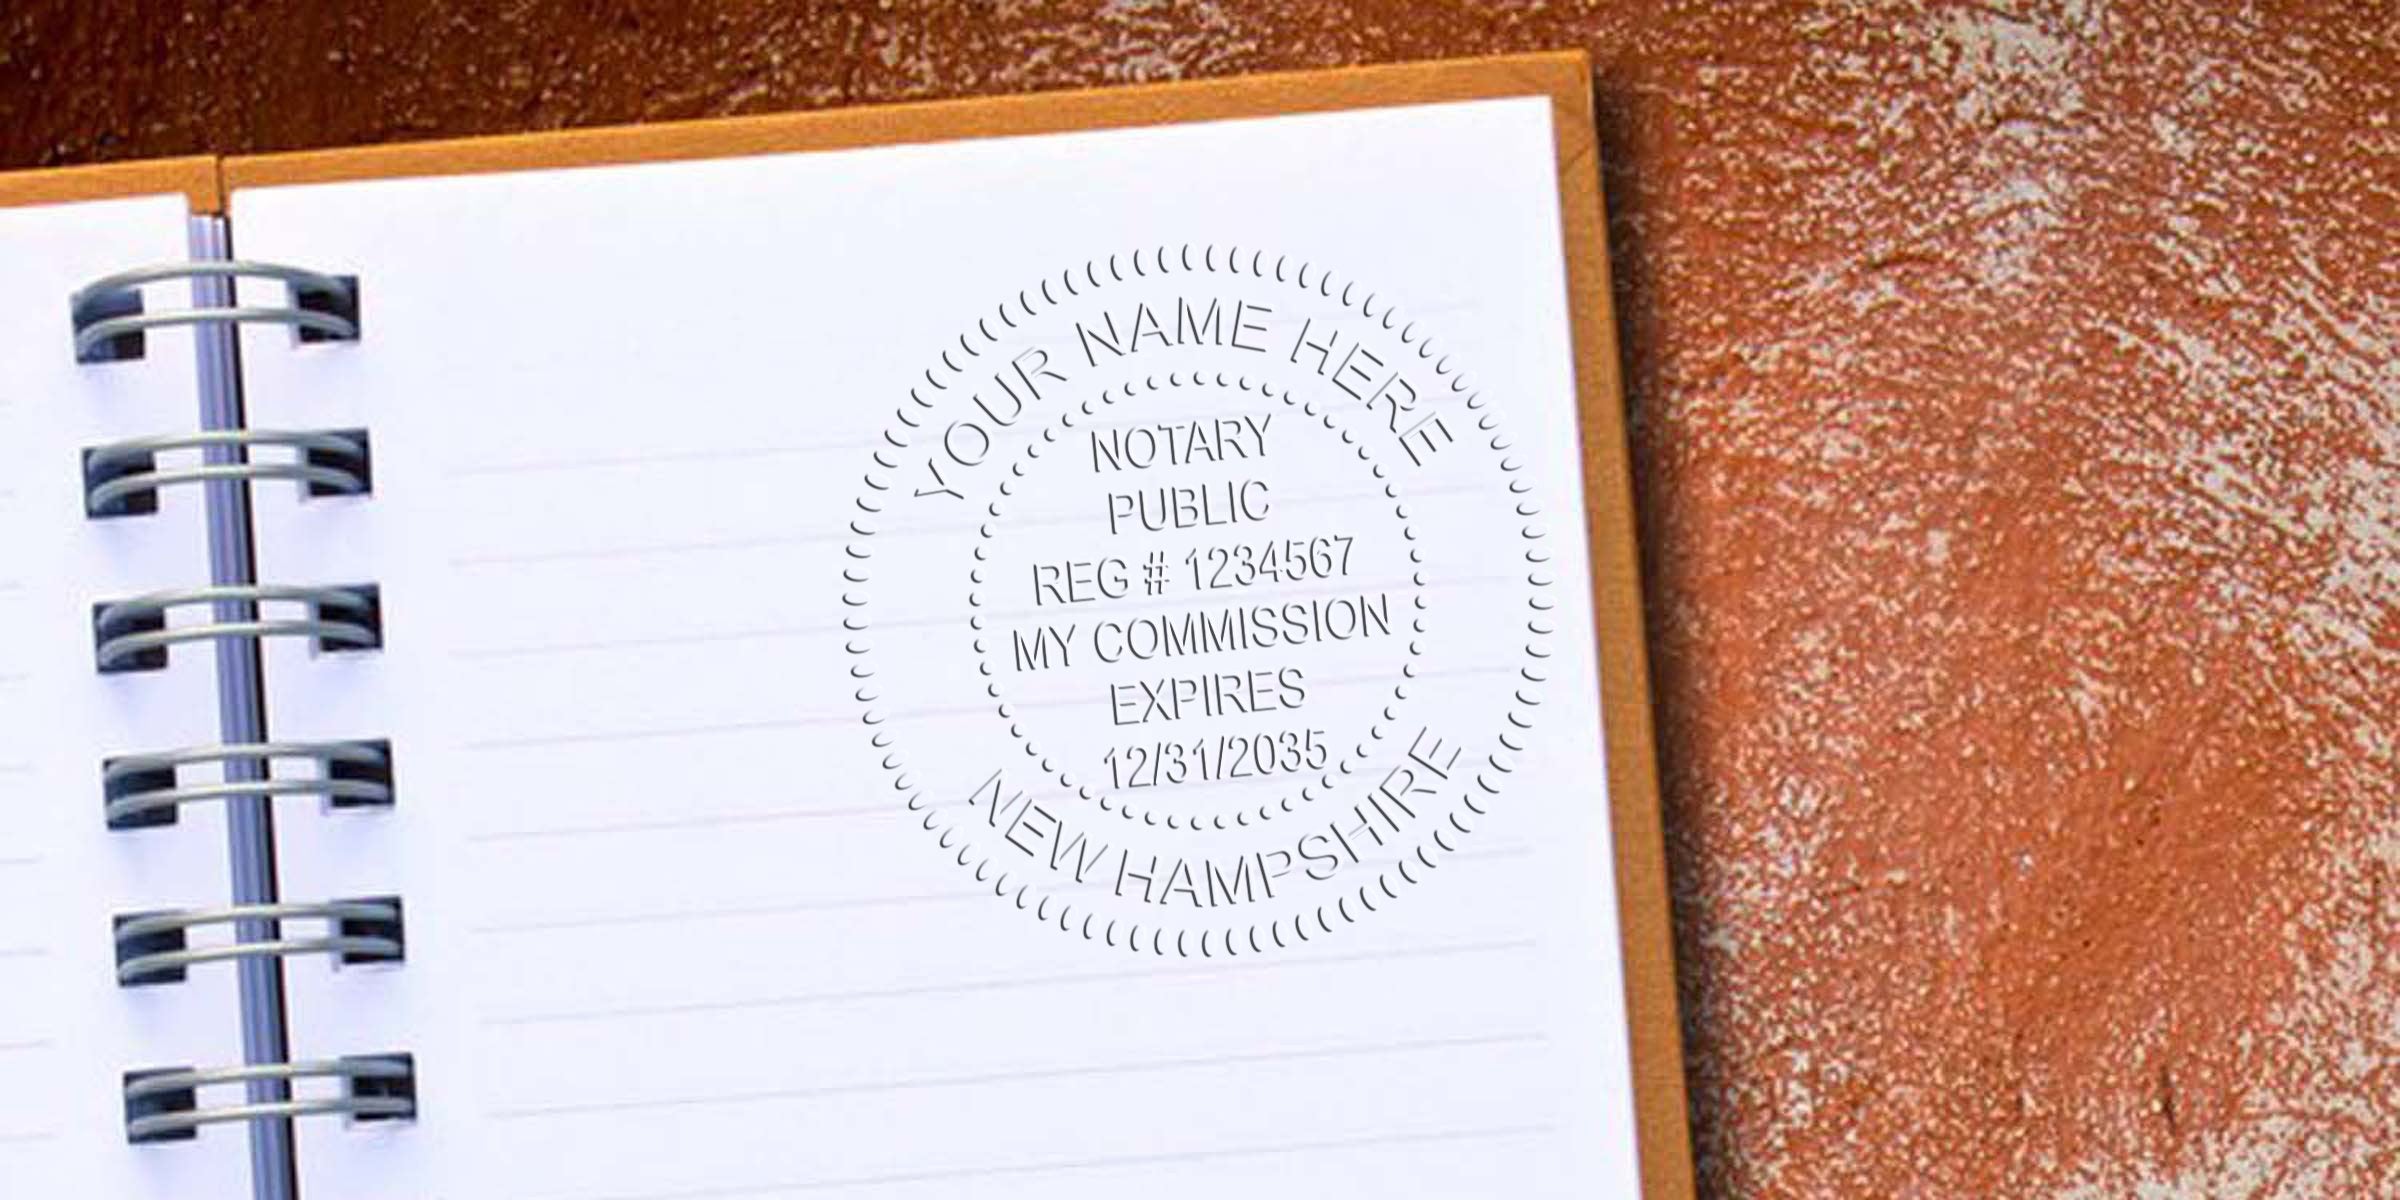 YOUR NAME HERE
NOTARY
PUBLIC
REG # 1234567
MY COMMISSION
EXPIRES
12/31/2035
NEW HAMPSHIRE